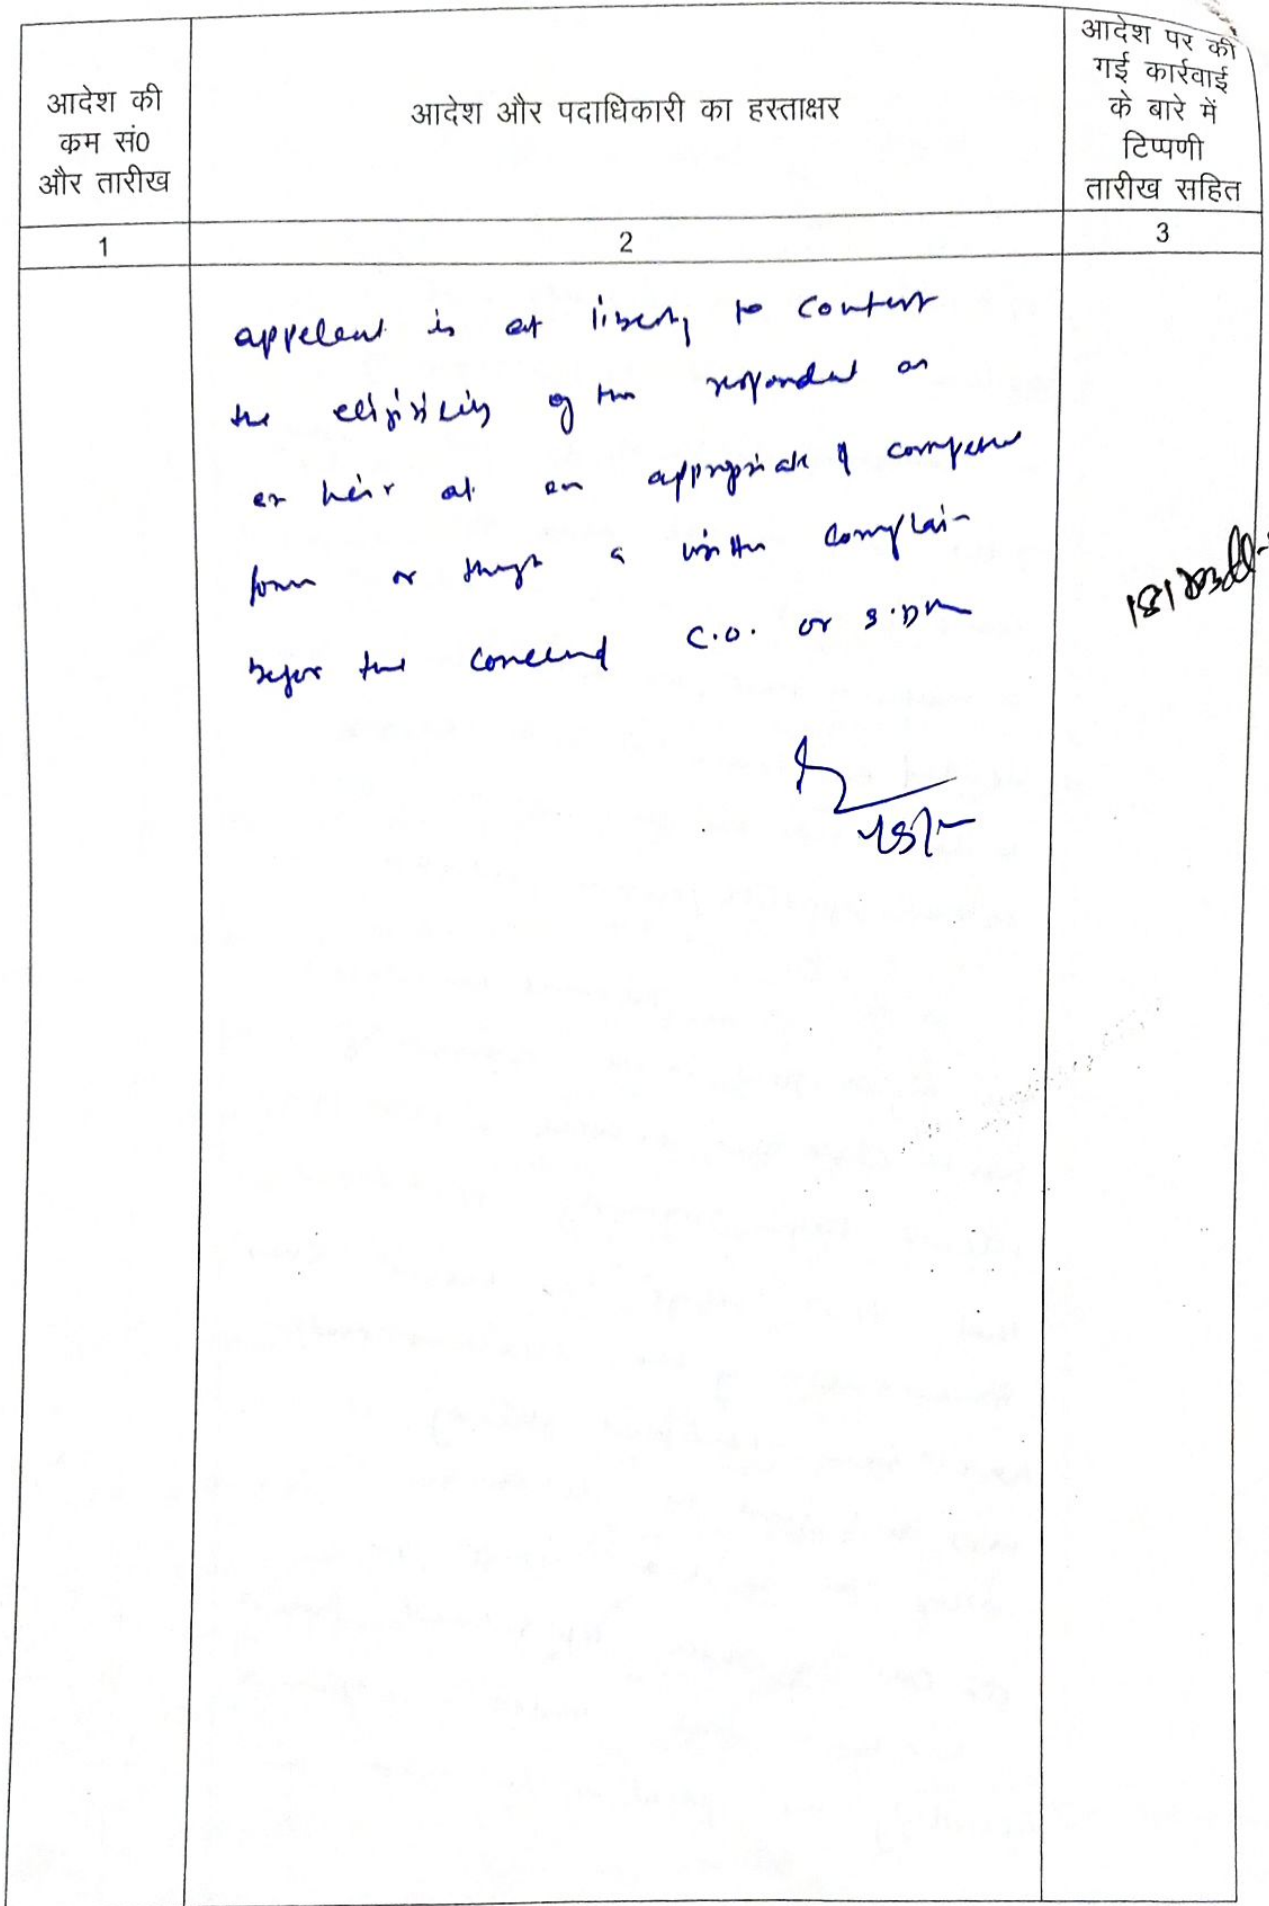 आदेश की
कम सं०
और तारीख
आदेश और पदाधिकारी का हस्ताक्षर
आदेश पर की
गई कार्रवाई
के बारे में
टिप्पणी
तारीख सहित
1
2
3
appelant is at liberty to contest
the eligibility of the respondent as
an heir at an appropriate & competent
forum or through a written complain
before the concerned C.O. or S.D.M